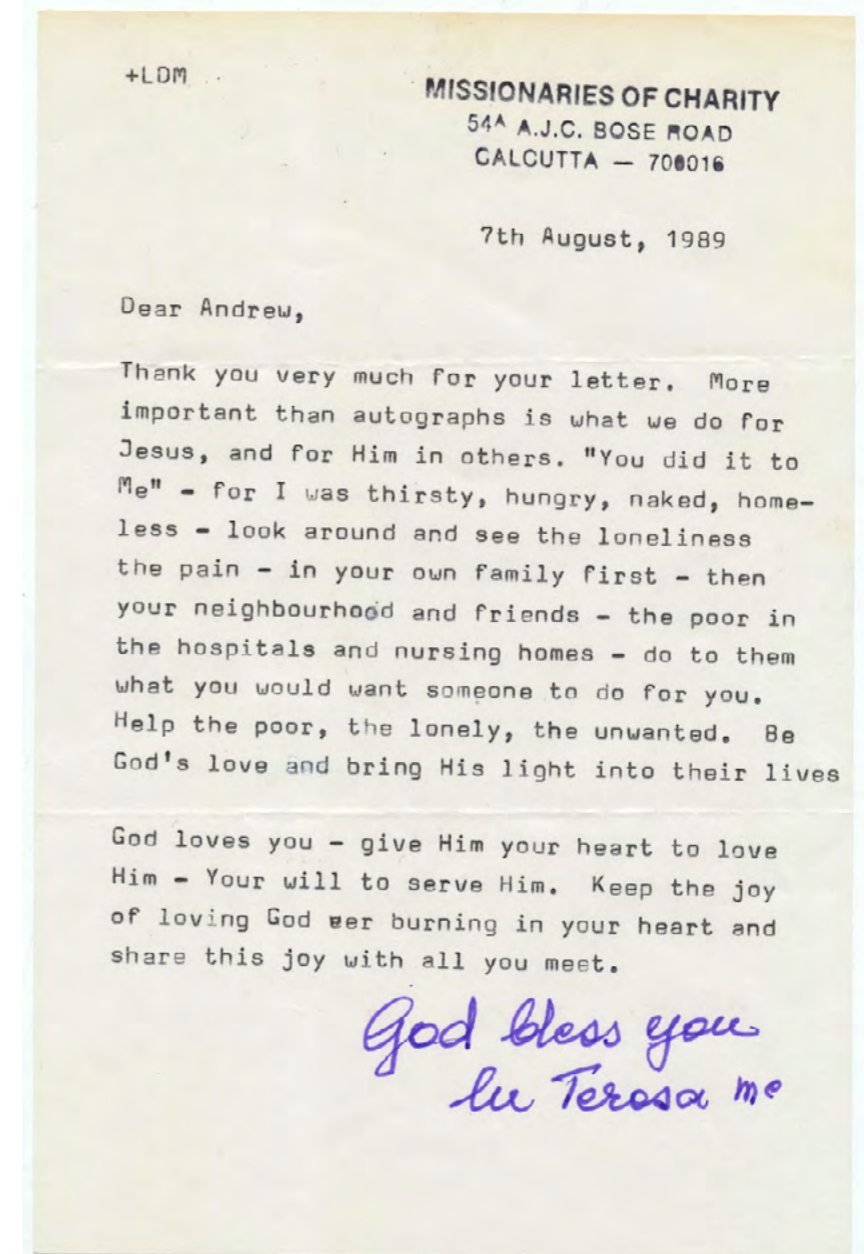 +LDM
MISSIONARIES OF CHARITY
54A A.J.C. BOSE ROAD
CALCUTTA — 700016
7th August, 1989
Dear Andrew,
Thank you very much for your letter. More
important than autographs is what we do for
Jesus, and for Him in others. "You did it to
Me" - for I was thirsty, hungry, naked, home-
less - look around and see the loneliness
the pain - in your own family first - then
your neighbourhood and friends - the poor in
the hospitals and nursing homes - do to them
what you would want someone to do for you.
Help the poor, the lonely, the unwanted. Be
God's love and bring His light into their lives
God loves you - give Him your heart to love
Him - Your will to serve Him. Keep the joy
of loving God eer burning in your heart and
share this joy with all you meet.
God bless you
lu Teresa mc